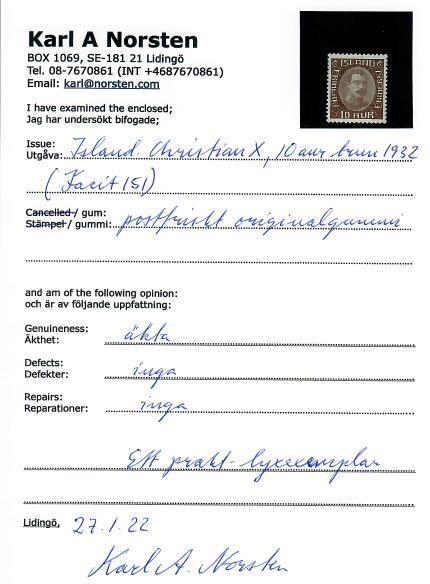 Karl A Norsten
BOX 1069, SE-181 21 Lidingö
Tel. 08-7670861 (INT +4687670861)
Email: karl@norsten.com
ISLAND
10 AUR
I have examined the enclosed;
Jag har undersökt bifogade;
Issue:
Utgåva: Island Christian X, 10 aur brun 1932
(Facit 151)
Cancelled / gum:
Stämpel / gummi: postfriskt originalgummi
and am of the following opinion:
och är av följande uppfattning:
Genuineness:
Äkthet: äkta
Defects:
Defekter: inga
Repairs:
Reparationer: inga
Ett prakt-lyxexemplar
Lidingö, 27.1.22
Karl A. Norsten